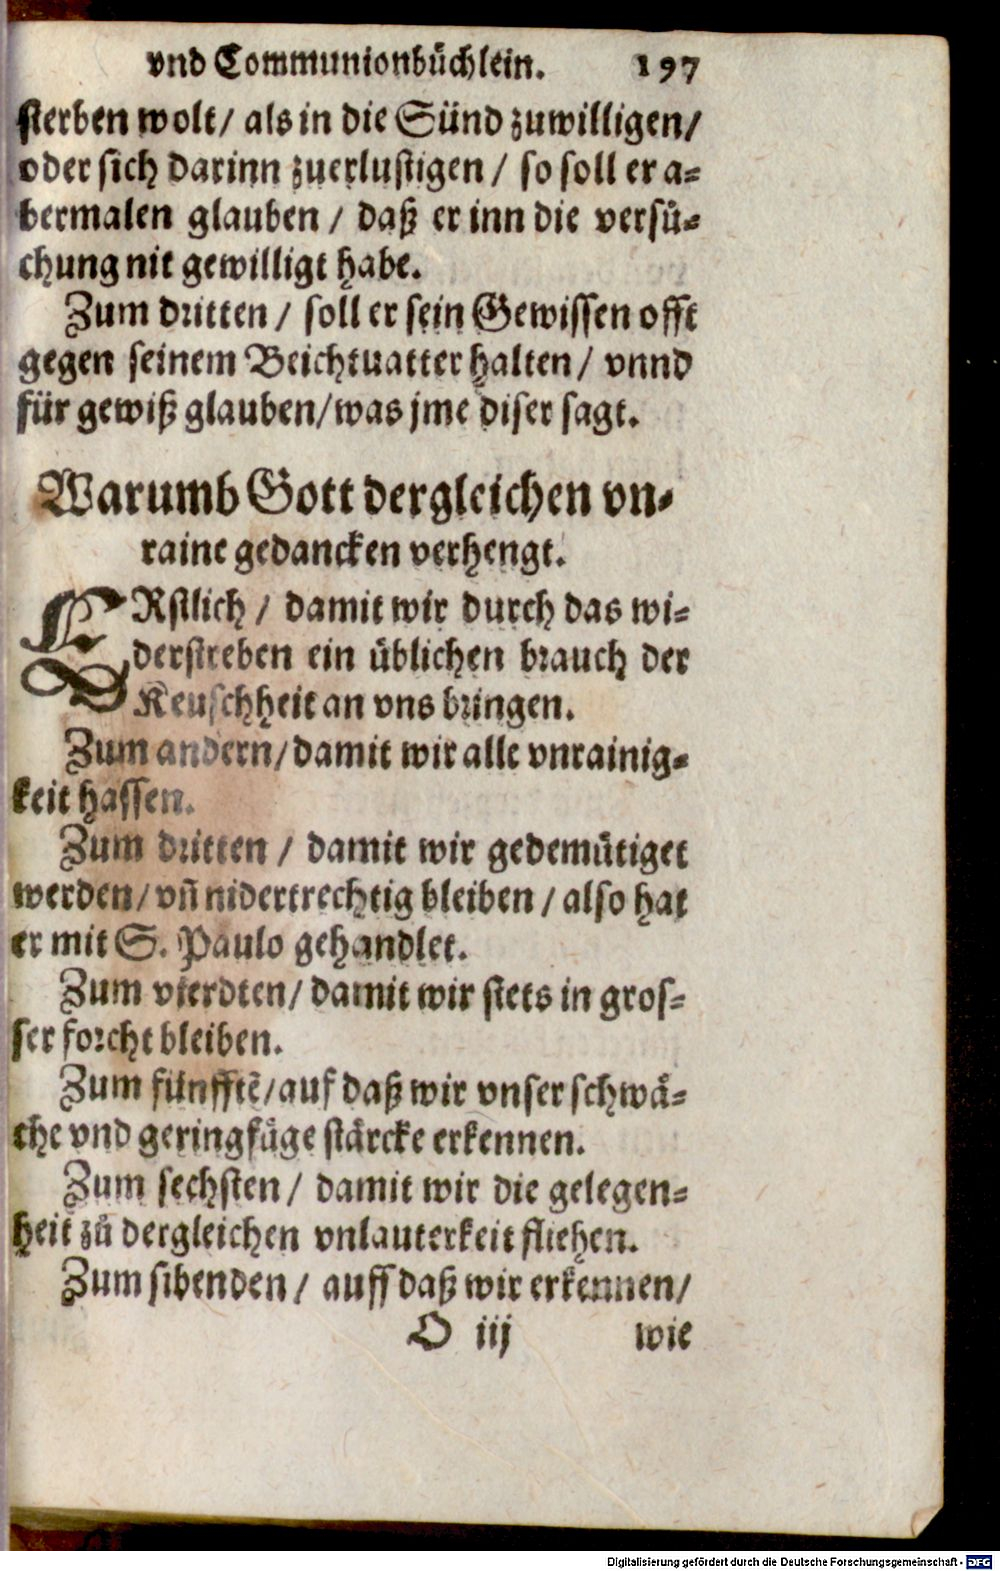 vnd Communionbuͤchlein. 197
sterben wolt/ als in die Sünd zuwilligen/
oder sich darinn zuerlustigen / so soll er a-
bermalen glauben / daß er inn die versuͤ-
chung nit gewilligt habe.
Zum dritten / soll er sein Gewissen offt
gegen seinem Beichtuatter halten/ vnnd
für gewiß glauben/was jme diser sagt.
Warumb Gott dergleichen vn-
raine gedancken verhengt.
ERstlich / damit wir durch das wi-
derstreben ein üblichen brauch der
Keuschheit an vns bringen.
Zum andern/damit wir alle vnrainig-
keit hassen.
Zum dritten / damit wir gedemuͤtiget
werden/ vñ nidertrechtig bleiben / also hat
er mit S. Paulo gehandlet.
Zum vierdten/ damit wir stets in gros-
ser forcht bleiben.
Zum fünfftē/auf daß wir vnser schwaͤ-
che vnd geringfuͤge staͤrcke erkennen.
Zum sechsten/ damit wir die gelegen-
heit zuͦ dergleichen vnlauterkeit fliehen.
Zum sibenden / auff daß wir erkennen/
O iij wie
Digitalisierung gefördert durch die Deutsche Forschungsgemeinschaft - DFG